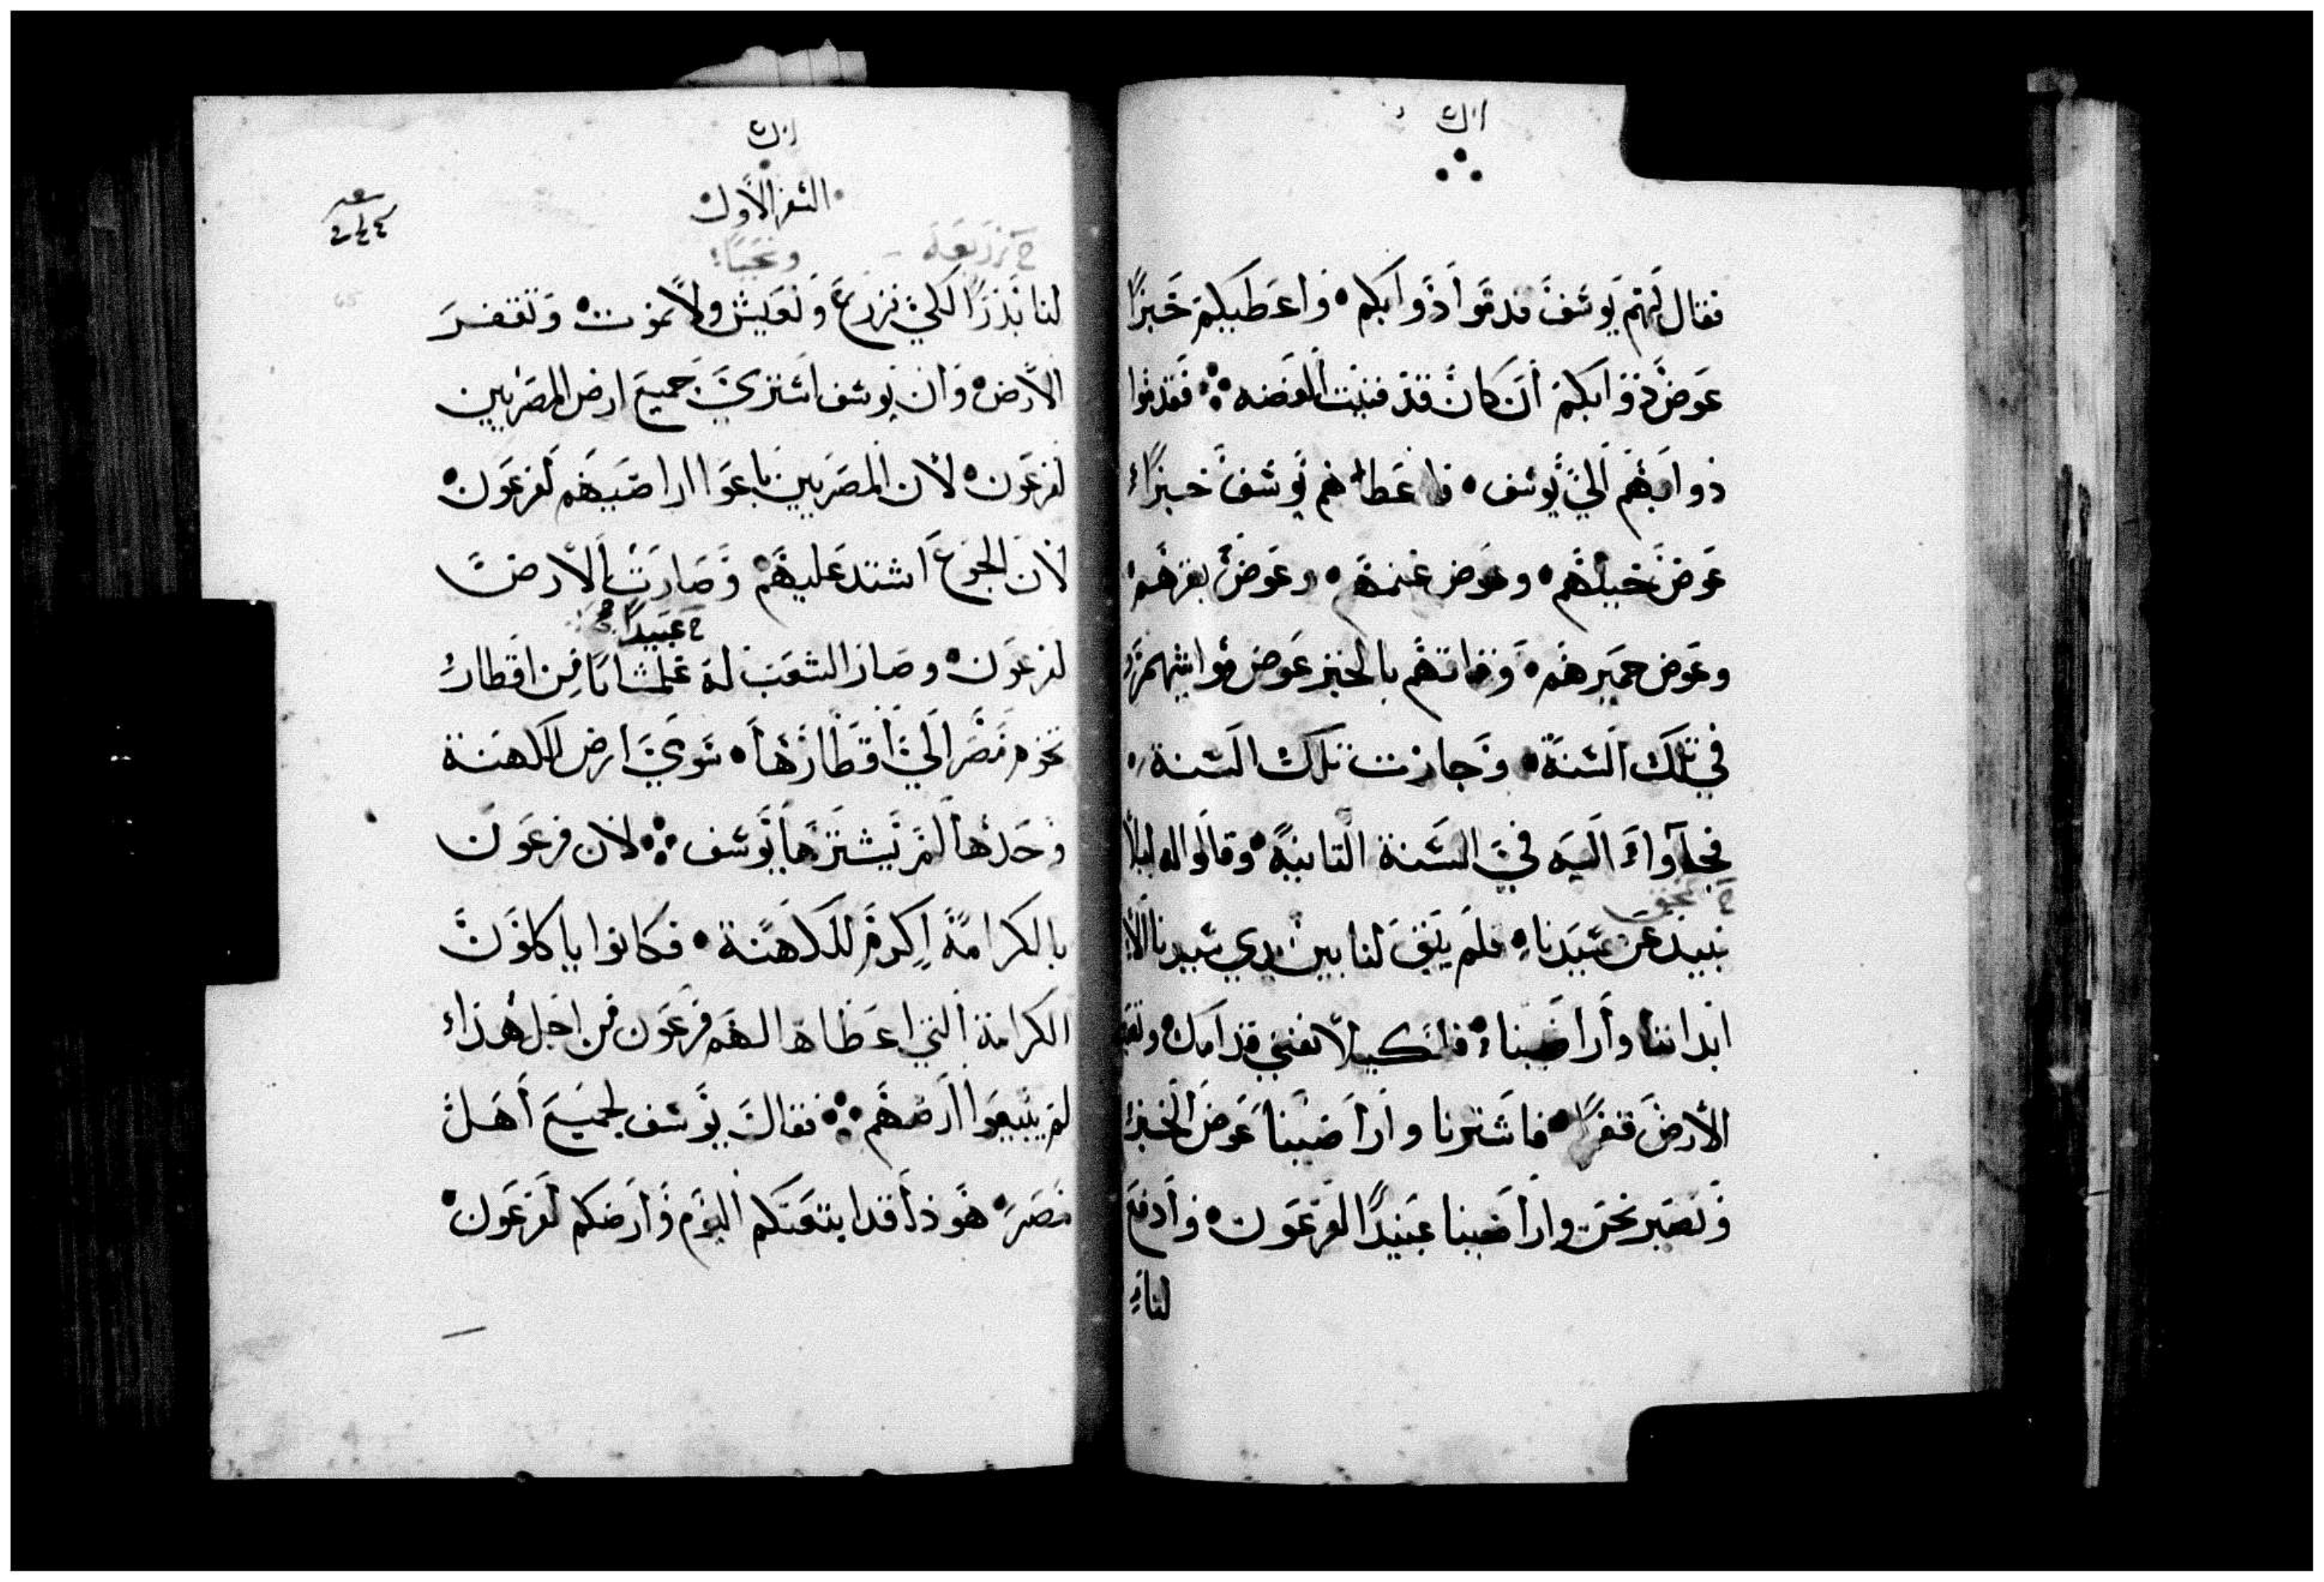 فقال لهم يوسف قدموا دوابكم • واعطيكم خبزًا
عوض دوابكم ان كان قد فنيت الفضه فقدموا
دوابهم الي يوسف • فاعطاهم يوسف خبزًا
عوض خيلهم • وعوض غنمهم • وعوض بقرهم
وعوض حميرهم • وقاتهم بالخبز عوض مواشيهم
في تلك السنة • وجازت تلك السنة •
فجآوا اليه في السنة التانية • وقالوا له ليلا
نبيد عن سيدنا • فلم يبق لنا بين يدي سيدنا الا
ابداننا واراضينا • فلكيلا نفني قدامك
الارض قفرًا • فاشترنا واراضينا عوض الخبز
ونصير نحن واراضينا عبيدًا لفرعون • وادفع
لنا
السفر الاول
لنا بذرًا لكي نزرع ونعيش ولا نموت • وتقفر
الارض • وان يوسف اشتري جميع ارض المصريين
لفرعون • لان المصريين باعوا اراضيهم لفرعون
لان الجوع اشتد عليهم وصارت الارض
عبيدًا
لفرعون • وصار الشعب له غلمانا من اقطار
تخوم مصر الي اقطارها • سوي ارض الكهنة
وحدها لم يشترها يوسف لان فرعون
بالكرامة اكرم للكهنة • فكانوا ياكلون
الكرامة التي اعطاها لهم فرعون من اجل هذا
لم يبيعوا ارضهم فقال يوسف لجميع اهل
مصر • هوذا قد ابتعتكم اليوم وارضكم لفرعون •